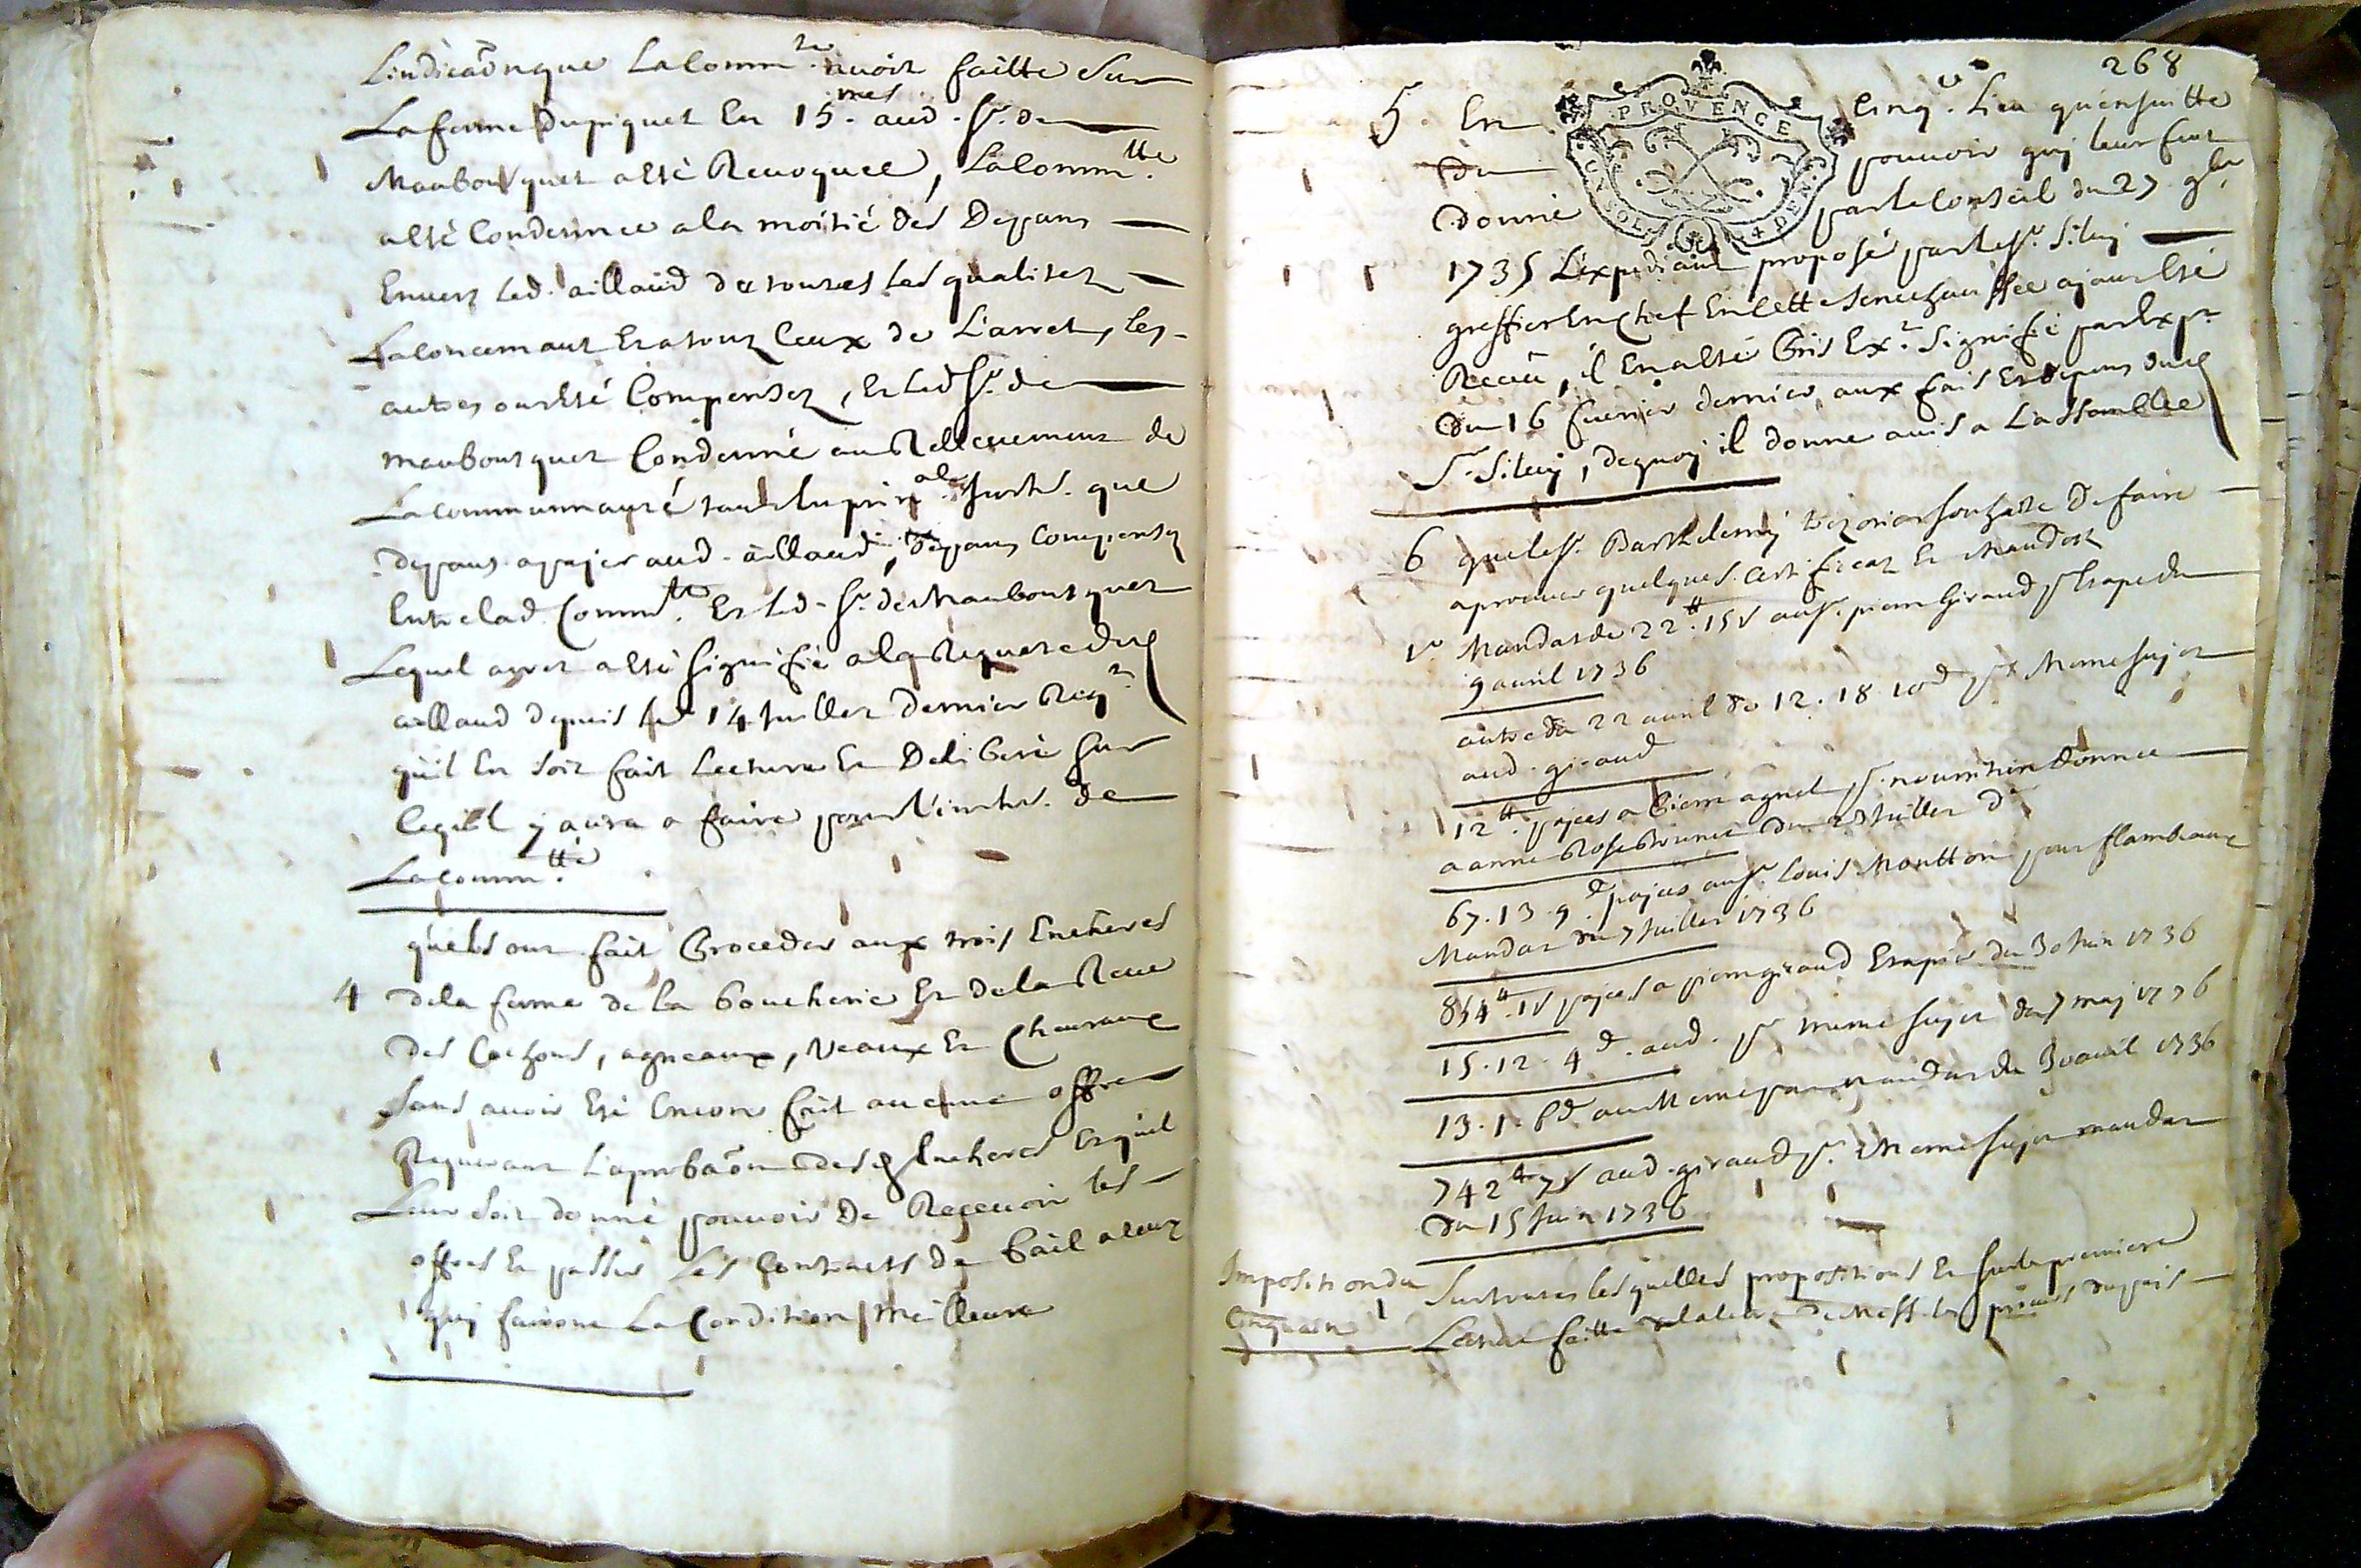 Lindicaõn que La Comm.té avoit faitte Sur
La ferme Du piquet En 15.mes aud. Sr. de
Maubousquet a Esté Revoquee, La Comm.tté
a Esté Condemnee a la moitié des Depans
Envers Led. aillaud de toutes Les qualitez
La Concernant Et a tous Ceux de L'arret, les
autres ont Esté Compensez, Et Led Sr. de
maubousquet Condemné au Rellevement de
La communauté tant En prin.al Jnths. que
depans a payer aud. aillaud, Depans Compensez
Entre lad. Comm.tté Et Led. Sr. de Maubousquet
Lequel arret a Esté Signifié a la Requete dud
aillaud depuis le 14 Juillet dernier Reqt
qu'il En Soit fait Lecture Et Deliberé Sur
Ce qu'il y aura a faire pour L'inths. de
La Comm.tté
quels ont fait Proceder aux trois Encheres
4 de la ferme de la boucherie Et de la Reve
des Cochons, agneaux, Veaux Et Chevraux
Sans avoir Eté Encore fait aucune offre
Requerant L'aprobaõn desd Encheres Et qu'il
Leur Soit donné pouvoir de Recevoir les
offres Et passer Les Contracts de bail a ceux
quy fairont La Condition Meilleure
268
PROVENCE
4 DEN.
5. En Cinq.e Lieu qu'ensuitte
Du pouvoir quy leur fut
Donné par le Conseil du 27 9bre
1735 L'expediant proposé par le Sr. Siluy
greffier En Chef En cette Senechaussée ayant Esté
Receu, il En a Esté Pris Ex.t Signifié par Expt
Du 16 fevrier dernier aux fais Et depens dud
Sr. Siluy, dequoy il donne avis a L'assemblee
6 que le Sr. Barthelemy trezorier souhaite De faire
aprouver quelques Certificaz Et Mandaz
1o Mandat de 22 tt. 15 s au Sr. pierre Giraud pr Etape du
9 avril 1736
autre du 22 avril de 12. 18. 10 d pr Meme Sujet
aud. giraud
12 tt. payées a Pierre agnel pr. nourriture donnee
a anne Rose du Juillet dr
67. 13. 9 d payes au Sr. Louis Moutton pour flambeaux
Mandat du 7 Juillet 1736
854 tt. 1 s payees a pierre giraud Etapier du 30 Juin 1736
15. 12. 4 d. aud. pr meme Sujet du 7 may 1736
13. 1. 6 d au Meme par mandat du 30 avril 1736
742 tt 7 s aud. giraud pr. Meme Sujet mandat
du 15 Juin 1736
Imposition du
Cinquain
Sur toutes lesquelles propositions Et Sur la premiere
Lecture faitte de la lettre de Mess. les du païs